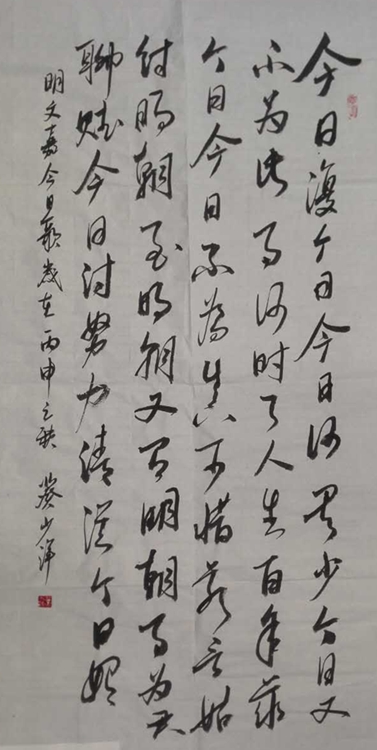 今日復今日今日何其少今日又
不为此事何时了人生百年幾
今日今日不為真可惜若言姑
待明朝至明朝又有明朝事为君
聊赋今日诗努力请従今日始
明文嘉今日歌歲在丙申之秋